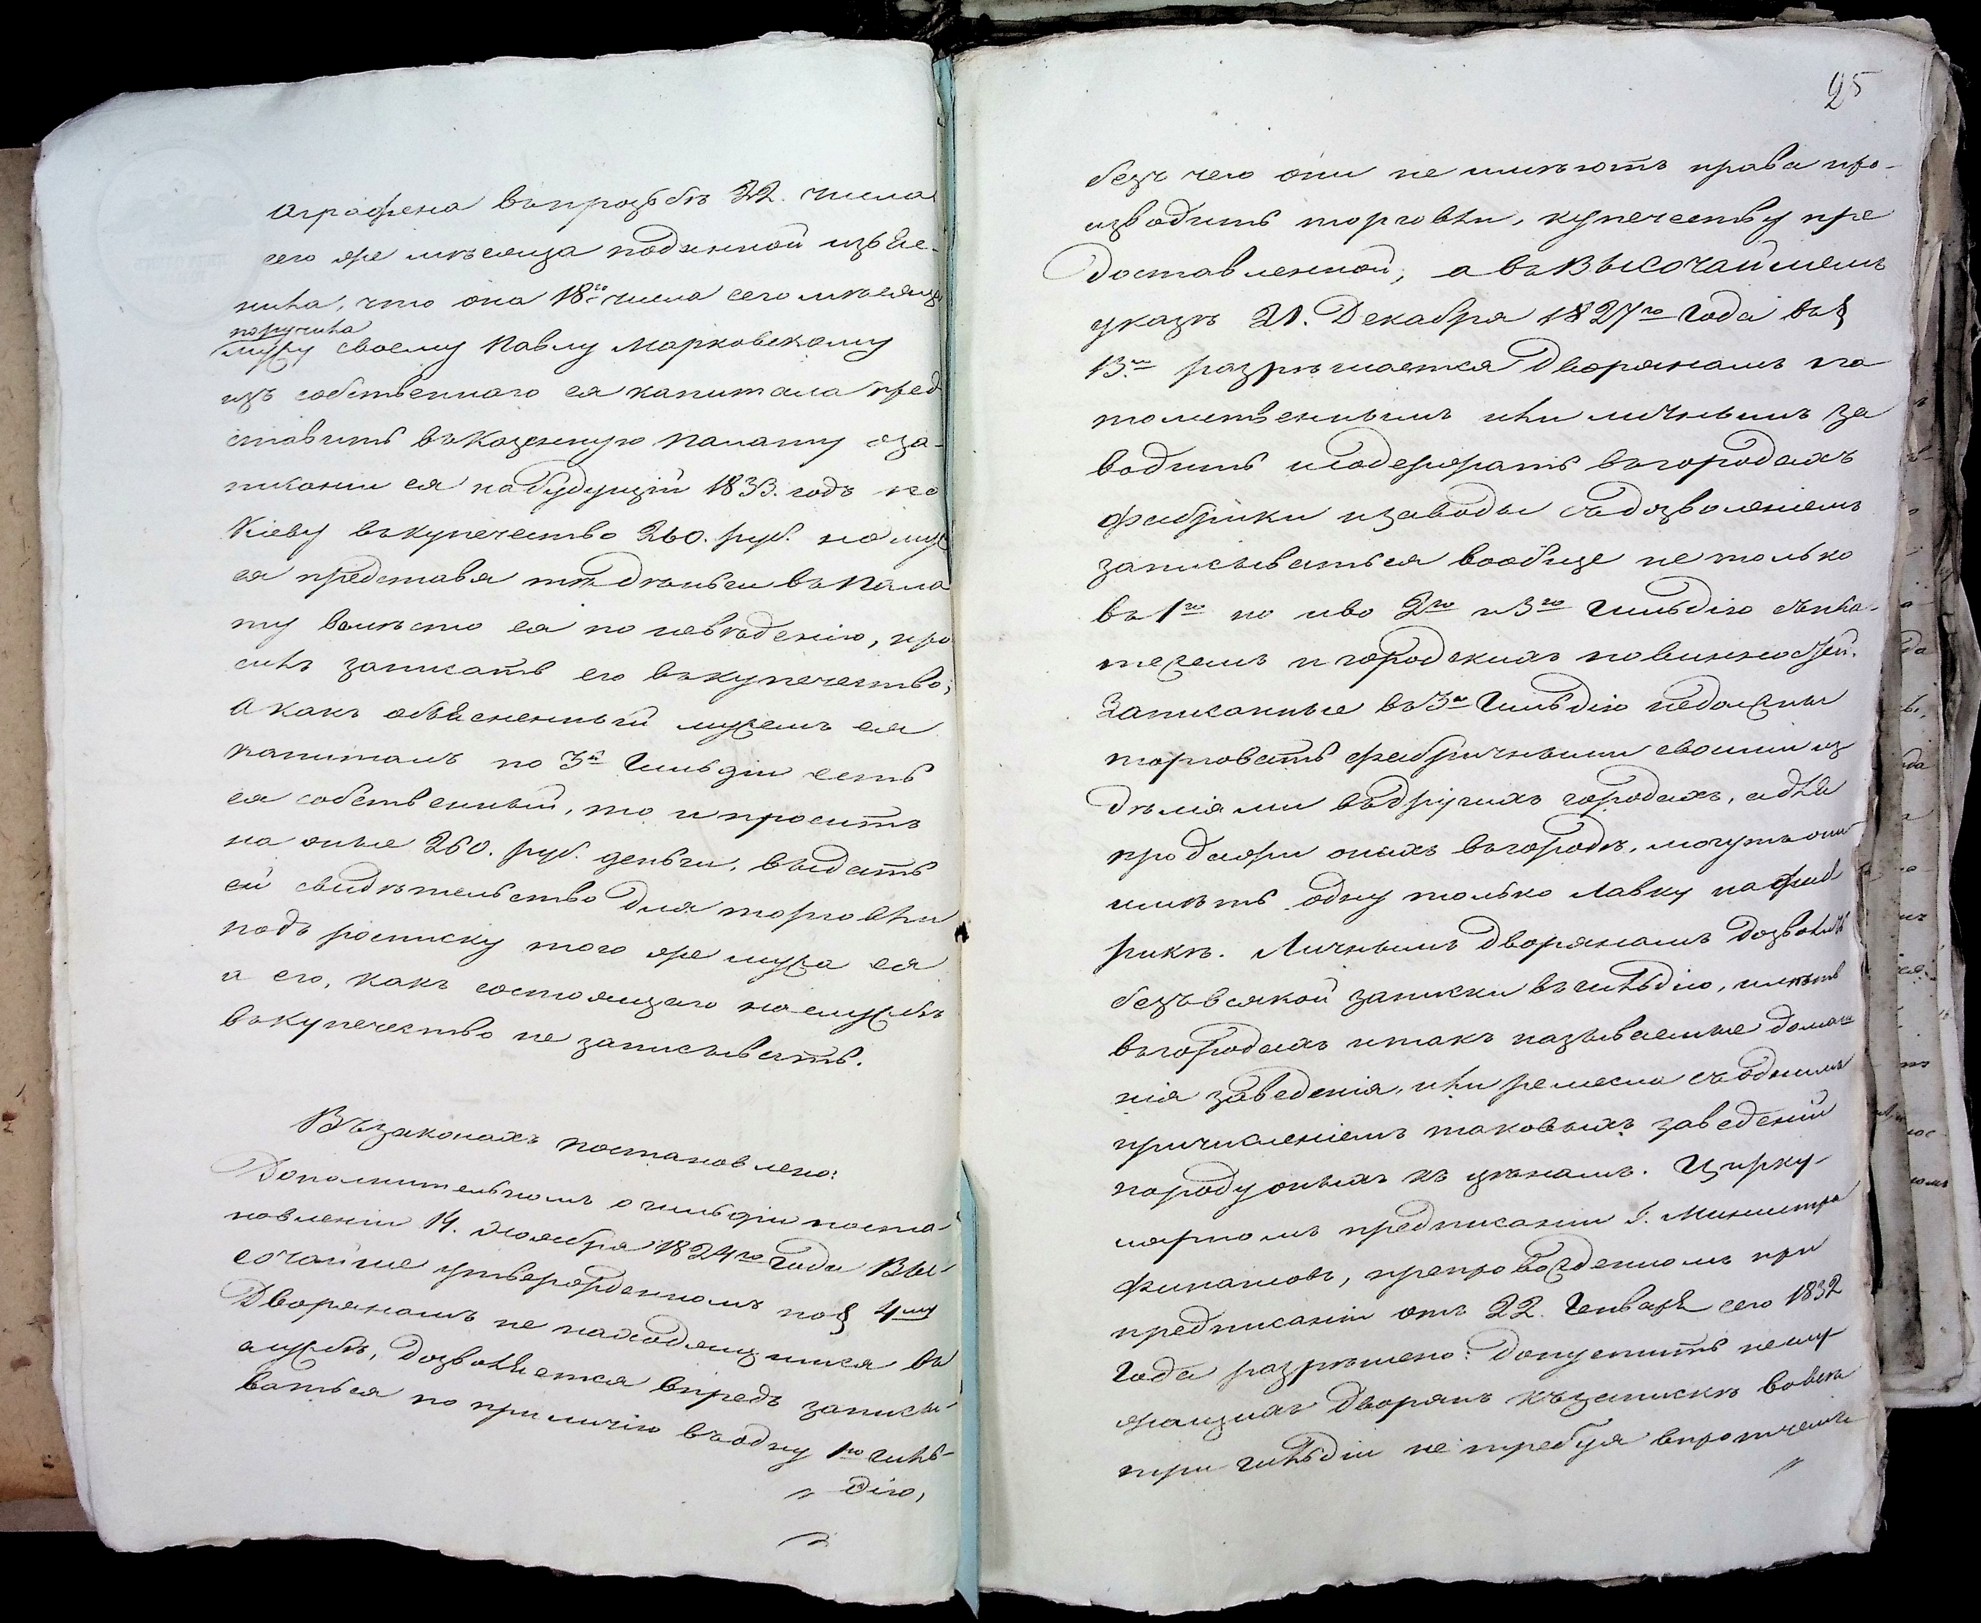 Аграфена въ прозьбѣ 22. числа
сего же мѣсяца поданной изъяс-
нила, что она 18го числа сего мѣсяца
поручила
мужу своему Павлу Марковскому
изъ собственнаго ея капитала пред
ставить въ Казенную Палату о за-
писании ея на будущій 1833. годъ по
Кіеву въ купечество 260. руб. но муж
ея представя тѣ деньги въ Пала
ту вмѣсто ея по невѣденію, про
силъ записать его въ купечество;
А какъ объясненный мужемъ ея
капиталъ по 3й Гильдіи есть
ея собственный, то и проситъ
на оные 260. руб. деньги, выдать
ей свидѣтельство для торговли
подъ росписку того же мужа ея
а его, какъ состоящаго на службѣ
въ купечество не записывать.
Въ законахъ постановлено:
Дополнительномъ о гильдіи поста-
новленіи 14. Ноября 1824го Года Вы-
сочайше утвержденномъ по § 4му
Дворянамъ не находящимся въ
службѣ, дозволяется впредь записы-
ваться по приличію въ одну 1ю гиль-
дію,
25
безъ чего они не имѣютъ права про-
изводить торговли, купечеству пре
доставленной; а въ Высочайшемъ
указѣ 21. Декабря 1827го Года въ §
13м разрѣшается Дворянамъ по
томственнымъ или личнымъ за
водить и содержать въ городахъ
фабрики и заводы съ дозволеніемъ
записываться вообще не только
въ 1ю но и во 2ю и 3ю Гильдію съ пла-
тежемъ и городскихъ повинностей.
Записанные въ 3ю Гильдію недолжны
торговать фабричными своими из
дѣліями въ другихъ городахъ, а для
продажи оныхъ въ городѣ, могутъ они
имѣть одну только лавку на фаб
рикѣ. Личнымъ дворянамъ дозволить
безъ всякой записки въ гильдію, имѣть
въ городахъ и такъ называемые домаш
нія заведенія, или ремесла съ однимъ
причисленіемъ таковыхъ заведеній
породу оныхъ къ цѣхамъ. Цирку-
лярномъ предписаніи Г. Министра
Финансовъ, препровожденномъ при
предписаніи отъ 22. Генваря сего 1832
Года разрѣшено: допустить неслу-
жащихъ Дворянъ къ запискѣ во всѣ
три гильдіи не требуя впротчемъ